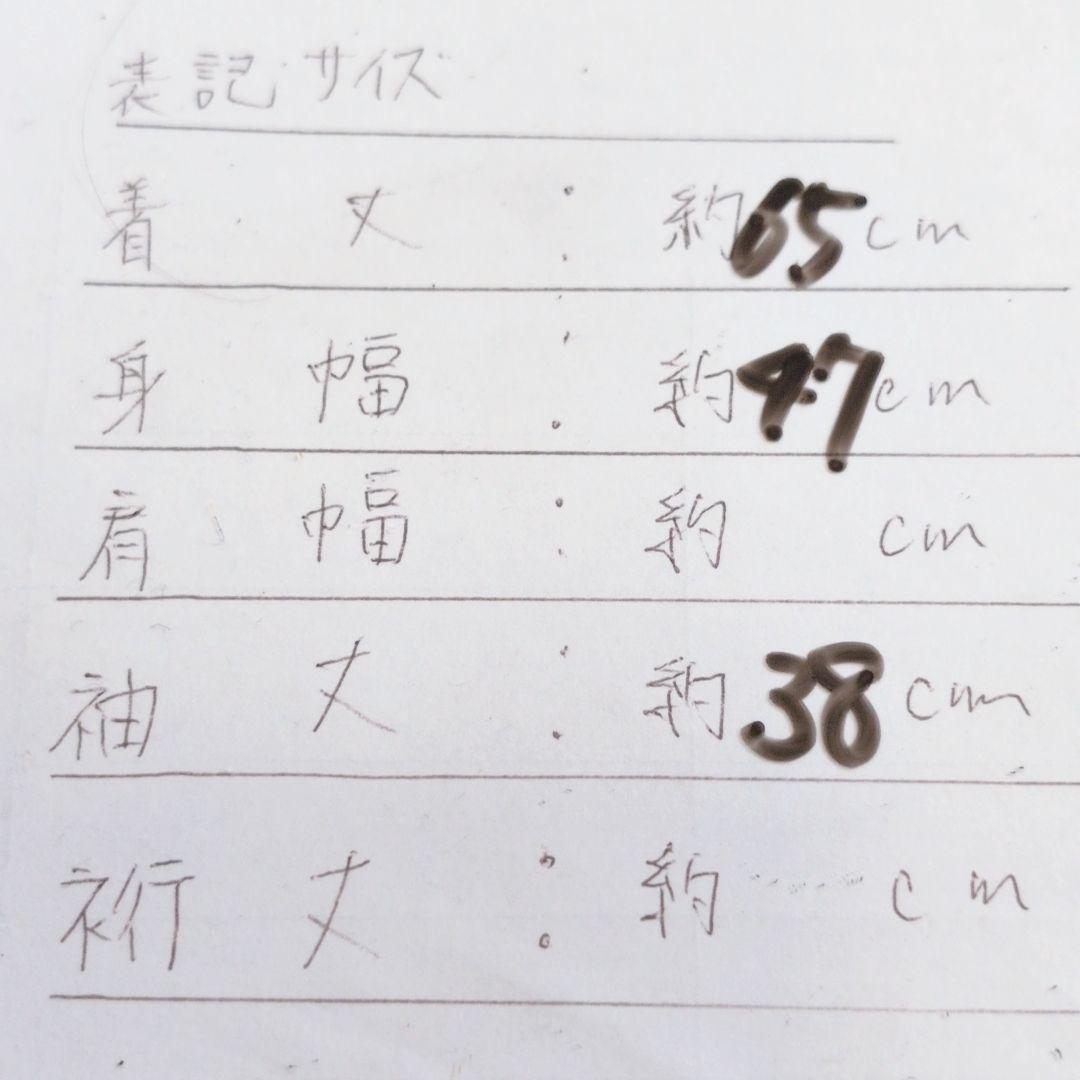 表記サイズ
着丈:約65cm
身幅:約47cm
肩幅:約 cm
袖丈:約38cm
裄丈:約 cm